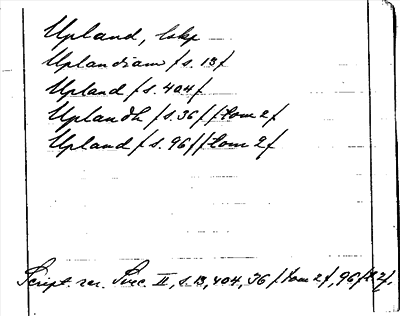 Upland, lskp
Uplandiam /s. 13/
Upland /s. 404/
Uplandh /s. 36/ /tom 2/
Upland /s. 96/ /tom 2/
Script. rer. Svec. II, s. 13, 404, 36 /tom 2/, 96 /t. 2/.